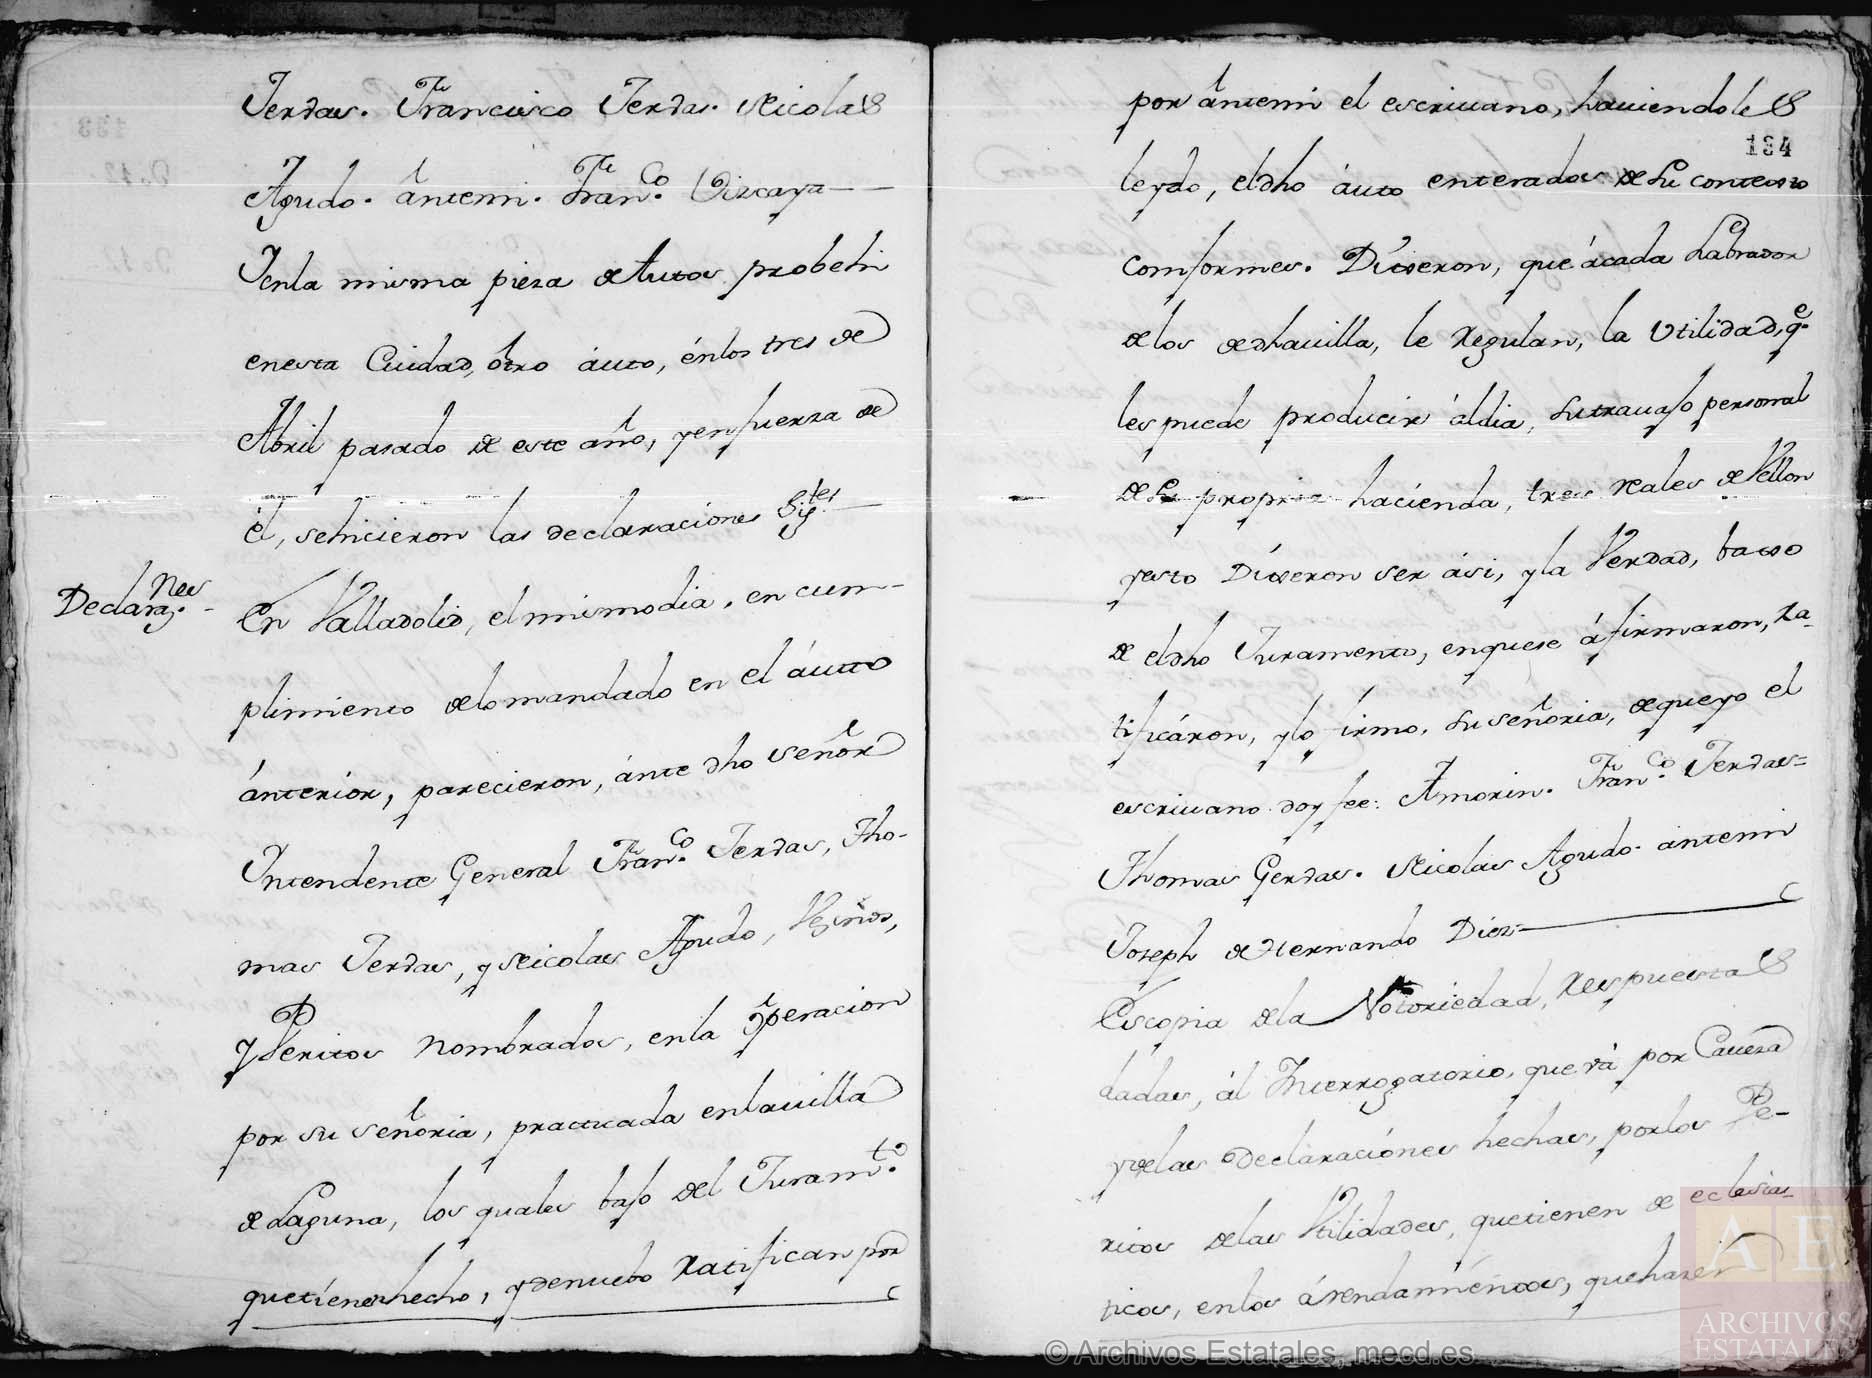 Jerdas. Francisco Jerdas. Nicolas
Agudo. ántemi. Fran.co Vizcaya
Yenla misma pieza de Autos probehi
enesta Ciudad, ótro áuto, énlos tres de
Abril pasado de este año, yenfuerza de
él, sehicieron las declaraciones Sig.tes
Declaraz.nes
En Valladolid, elmismodia, en cum-
plimiento delomandado en el áuto
ánteriór, parecieron, ánte dho señór
Yntendente General Fran.co Jerdas, Tho-
mas Jerdas, y Nicolas Agudo, Vezinos,
YPeritos nombrados, enla óperacion
por su señoria, practicada enlavilla
de Laguna, los quales bajo del Juram.to
quetienenhecho, ydenuebo Ratifican por
por ántemi el escriuano, hauiendoles
184
leydo, eldho áuto enterados de su contexto
comformes. Dixeron, que ácada Labrador
delos dedhauilla, le Regulan, la Utilidad, q.e
lespuede producir áldia, sutrauajo personal
de su propria hacienda, tres Reales deVellon
yesto Díxeron ser ási, yla Verdad, baxo
de eldho Juramento, enquese áfirmaron, Ra-
tificáron, ylo firmo, suseñoria, dequeyo el
escriuano doyfee: Amorin. Fran.co Jerdas=
Thomas Gerdas. Nicolas Agudo. antemi
Joseph de Hernando Diez
Escopia dela Notoriedad, Respuestas
dadas, ál Ynterrogatorio, que vá por Caueza
ydelas Declaraciónes hechas, porlos Pe-
ritos delas Utilidades, quetienen de eclesias-
ticos, enlos árendamiéntos, quehazen
© Archivos Estatales, mecd.es
AE
ARCHIVOS
ESTATALES